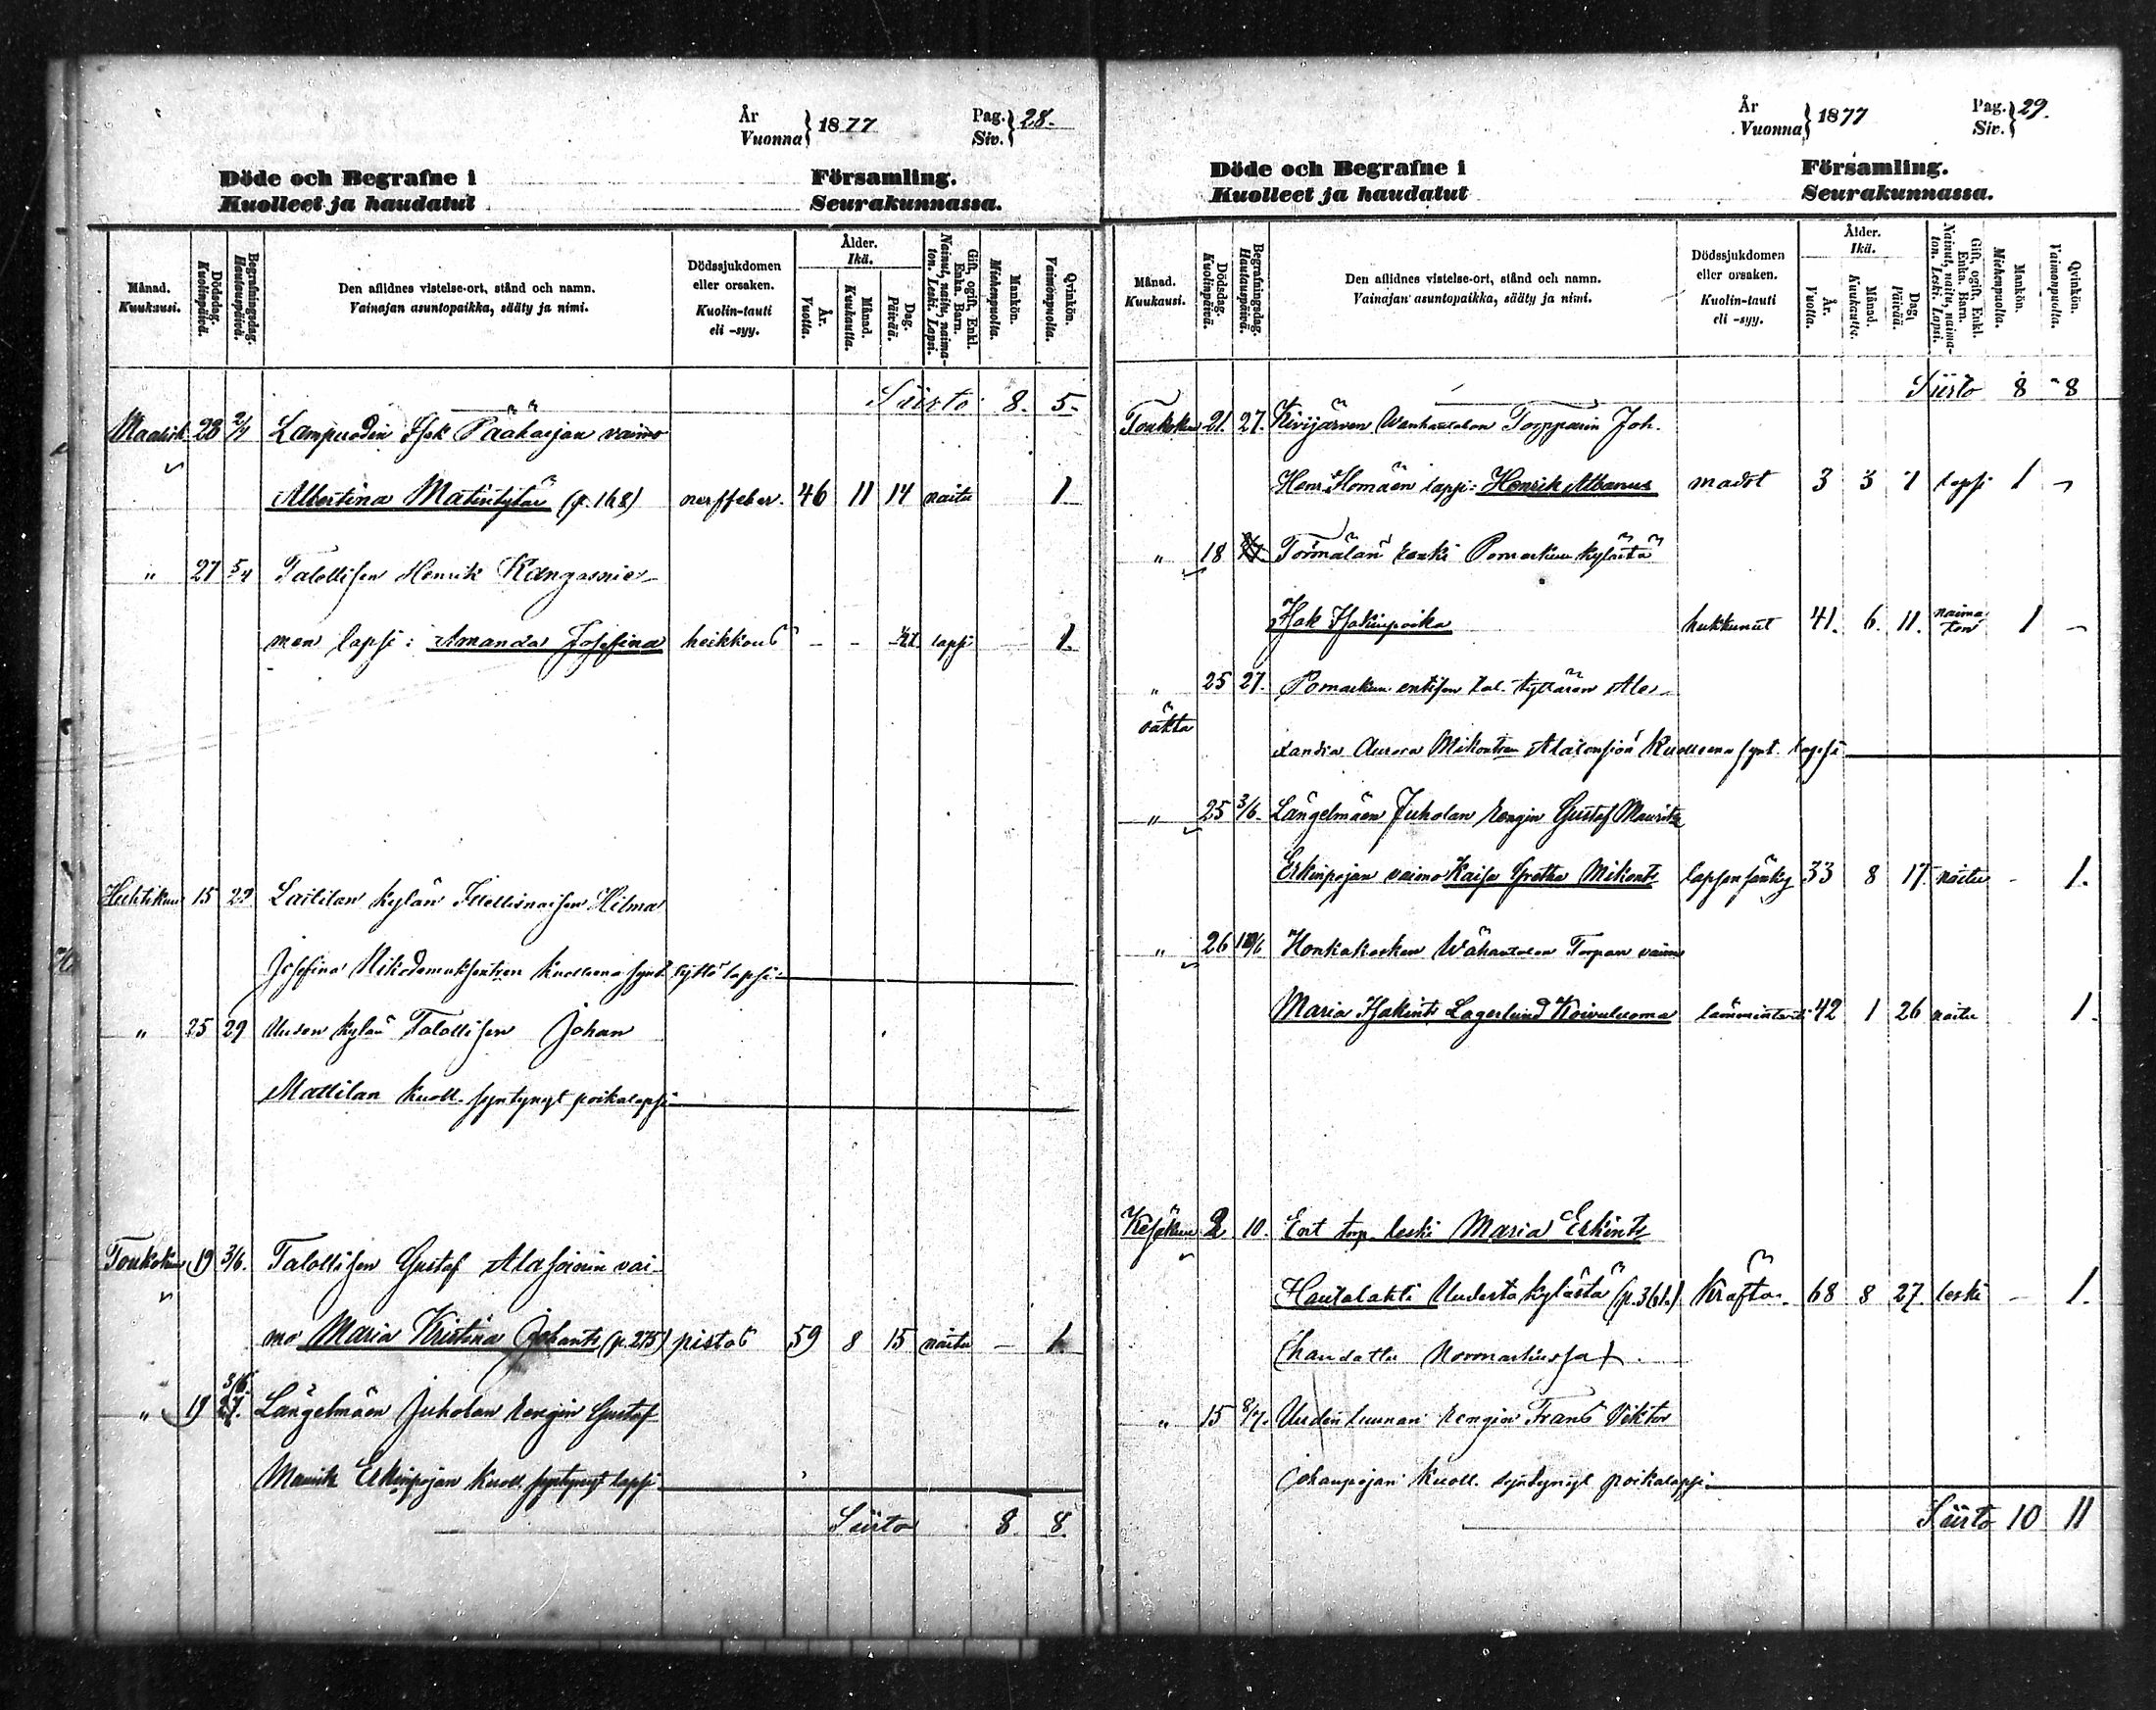 År
Vuonna } 1877
Pag.
Siv. } 28.
Döde och Begrafne i Församling.
Kuolleet ja haudatut Seurakunnassa.
Månad. Kuukausi.
Dödsdag. Kuolinpäivä.
Begrafningsdag. Hautauspäivä.
Den aflidnes vistelse-ort, stånd och namn.
Vainajan asuntopaikka, sääty ja nimi.
Dödssjukdomen eller orsaken.
Kuolin-tauti eli -syy.
Ålder. Ikä.
År. Vuotta.
Månad. Kuukautta.
Dag. Päivää.
Gift, ogift, Enkl. Enka. Barn.
Nainut, naitu, naimaton. Leski. Lapsi.
Mankön. Miehenpuolta.
Qvinkön. Vaimonpuolta.
Siirto 8. 5.
Maalisk. 23 2/4 Lampuodin Isak Pääharjan vaimo
Albertina Matintytär (p. 168) nerffeber. 46 11 14 naitu 1
" 27 5/4 Talollisen Henrik Kangasnie-
men lapsi: Amanda Josefina heikkous - - lapsi 1.
Huhtikuu 15 29 Laitilan kylän Itsellisnaisen Hilma
Josefina Nikodemuksentren kuolleena synt. tyttö lapsi
" 25 29 Uuden kylän Talollisen Johan
Mattilan kuoll. syntynyt poikalapsi
Toukokuu 19 3/6. Talollisen Gustaf Alasioisin vai-
mo Maria Kristina Johants (p. 275) pistos 59 8 15 naitu - 1.
" 19 3/6 27. Längelmäen Juholan rengin Gustaf
Maurits Erkinpojan kuoll. syntynyt lapsi
Siirto 8. 8.
År
Vuonna } 1877
Pag.
Siv. } 29.
Döde och Begrafne i Församling.
Kuolleet ja haudatut Seurakunnassa.
Månad. Kuukausi.
Dödsdag. Kuolinpäivä.
Begrafningsdag. Hautauspäivä.
Den aflidnes vistelse-ort, stånd och namn.
Vainajan asuntopaikka, sääty ja nimi.
Dödssjukdomen eller orsaken.
Kuolin-tauti eli -syy.
Ålder. Ikä.
År. Vuotta.
Månad. Kuukautta.
Dag. Päivää.
Gift, ogift, Enkl. Enka. Barn.
Nainut, naitu, naimaton. Leski. Lapsi.
Mankön. Miehenpuolta.
Qvinkön. Vaimonpuolta.
Siirto 8 8
Toukokuu 21. 27. Kivijärven Wanhantalon Torpparin Joh.
Henr. lapsi: Henrik Albanus madot 3 3 1 lapsi 1 -
" 18 Törmälän renki Pomarkun kylästä
Isak Isakinpoika hukkunut 41. 6. 11. naimaton 1 -
" 25 27. Pomarkun entisen tal. tyttären Ale-
xandra Aurora Mikontren kuolleena synt. lapsi
" 25 3/6. Längelmäen Juholan rengin Gustaf Maurits
Erkinpojan vaimo Kaisa Gretha Mikonts lapsensänky 33 8 17. naitu - 1.
" 26 10/6 Honkakosken Wähäntalon Torpan vaimo
Maria Isakints Lagerlund Koivuluoma 42 1 26 naitu 1.
Kesäkuu 2 10. Ent torp. leski Maria Erkints
Hautalahti Uudesta kylästä (p. 361.) Kräfta. 68 8 27. leski - 1.
(haudattu Normarkussa)
" 15 8/7. Uuden rengin Frans Viktor
Johanpojan kuoll. syntynyt poikalapsi
Siirto 10 11